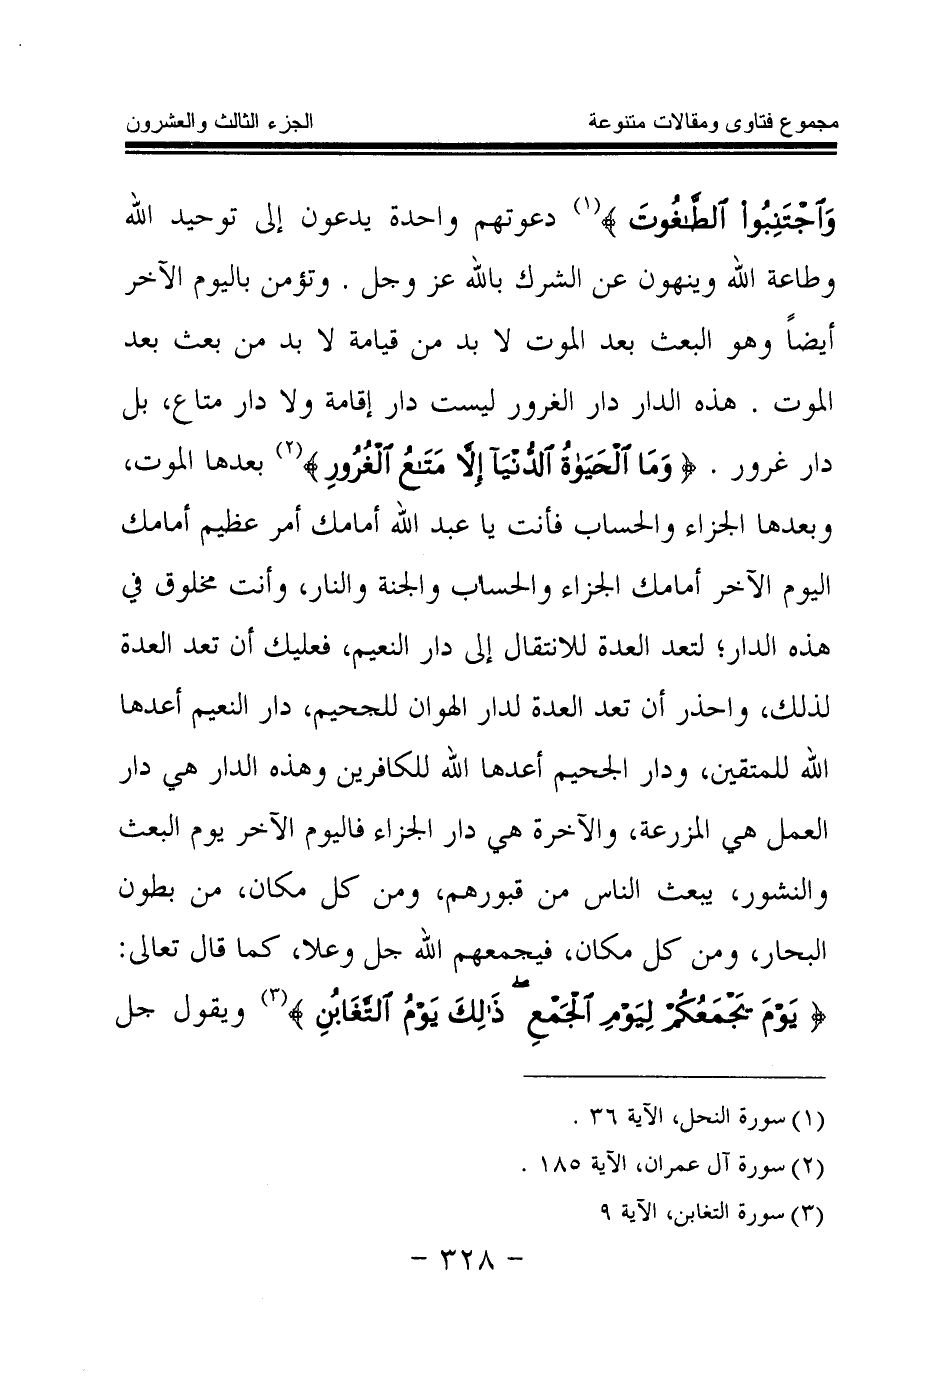 مجموع فتاوى ومقالات متنوعة الجزء الثالث والعشرون
وَٱجْتَنِبُوا۟ ٱلطَّـٰغُوتَ ﴾(١) دعوتهم واحدة يدعون إلى توحيد الله
وطاعة الله وينهون عن الشرك بالله عز وجل . وتؤمن باليوم الآخر
أيضاً وهو البعث بعد الموت لا بد من قيامة لا بد من بعث بعد
الموت . هذه الدار دار الغرور ليست دار إقامة ولا دار متاع، بل
دار غرور . ﴿ وَمَا ٱلْحَيَوٰةُ ٱلدُّنْيَآ إِلَّا مَتَـٰعُ ٱلْغُرُورِ ﴾(٢) بعدها الموت،
وبعدها الجزاء والحساب فأنت يا عبد الله أمامك أمر عظيم أمامك
اليوم الآخر أمامك الجزاء والحساب والجنة والنار، وأنت مخلوق في
هذه الدار؛ لتعد العدة للانتقال إلى دار النعيم، فعليك أن تعد العدة
لذلك، واحذر أن تعد العدة لدار الهوان للجحيم، دار النعيم أعدها
الله للمتقين، ودار الجحيم أعدها الله للكافرين وهذه الدار هي دار
العمل هي المزرعة، والآخرة هي دار الجزاء فاليوم الآخر يوم البعث
والنشور، يبعث الناس من قبورهم، ومن كل مكان، من بطون
البحار، ومن كل مكان، فيجمعهم الله جل وعلا، كما قال تعالى:
﴿ يَوْمَ يَجْمَعُكُمْ لِيَوْمِ ٱلْجَمْعِ ۖ ذَٰلِكَ يَوْمُ ٱلتَّغَابُنِ ﴾(٣) ويقول جل
(١) سورة النحل، الآية ٣٦ .
(٢) سورة آل عمران، الآية ١٨٥ .
(٣) سورة التغابن، الآية ٩
- ٣٢٨ -